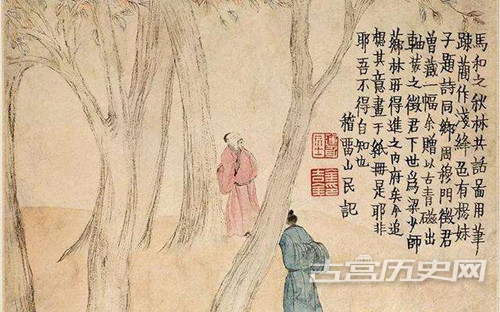 馬和之秋林共話啚用筆
踈蕳作淺絳色有楊妹
子題詩同鄉周穆門徵君
曾藏一幅余贈以古青磁出
軸裝之徵君下世爲梁少師
薌林所得進之内府矣今追
橅其意畫于紙冊是耶非
耶吾不得自知也
稽畱山民記
古宫历史网